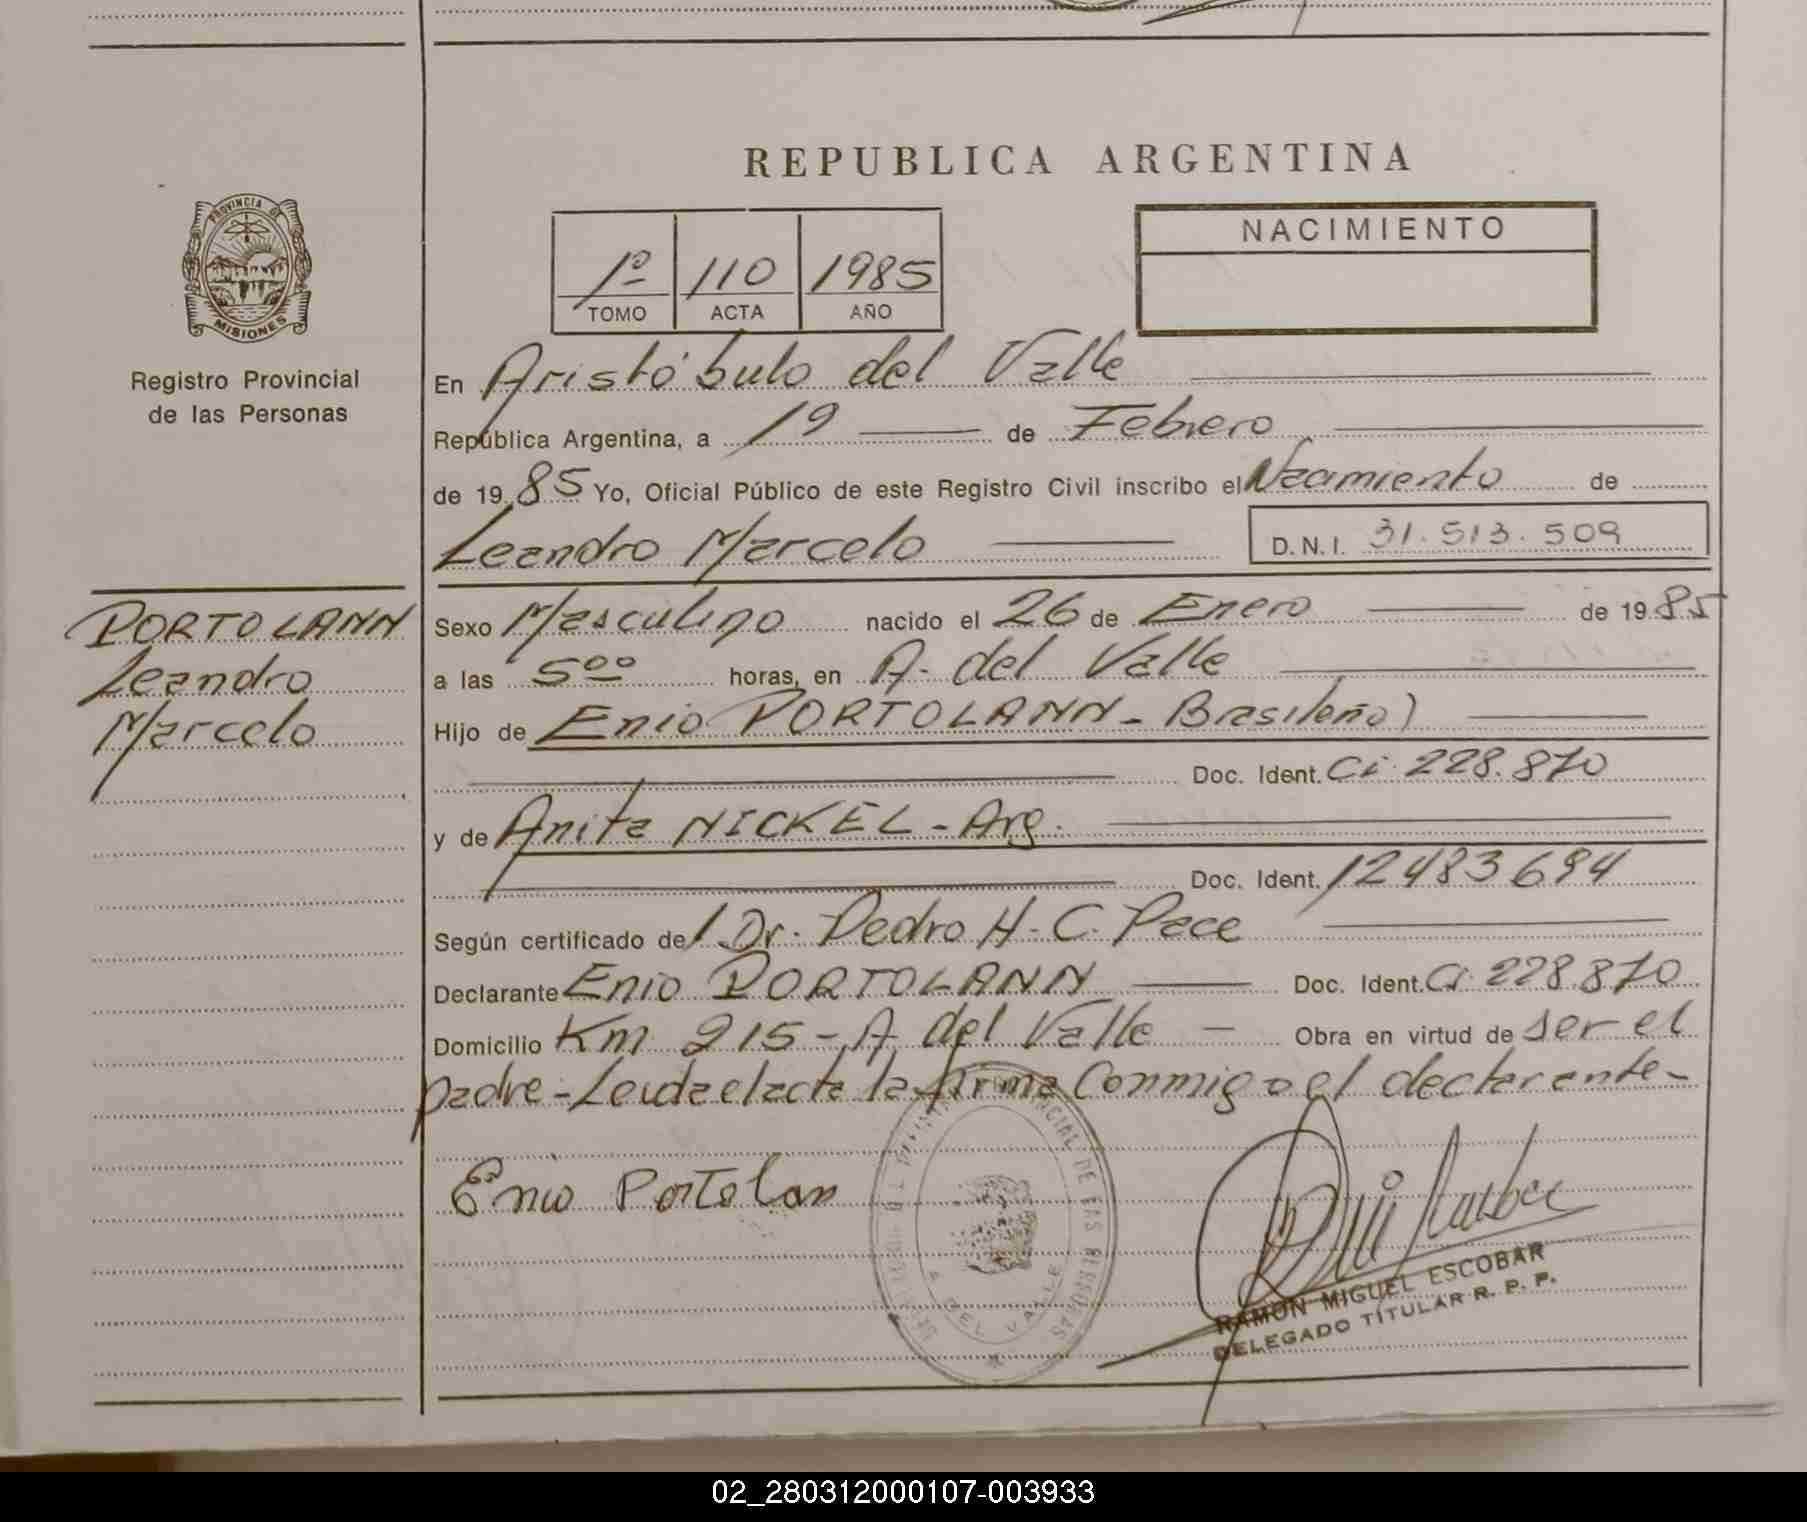 REPUBLICA ARGENTINA
PROVINCIA DE
MISIONES
Registro Provincial
de las Personas
1º 110 1985
TOMO ACTA AÑO
NACIMIENTO
En Aristóbulo del Valle
República Argentina, a 19 de Febrero
de 1985 Yo, Oficial Público de este Registro Civil inscribo el Nacimiento de
Leandro Marcelo D.N.I. 31.513.509
PORTOLANN
Leandro
Marcelo
Sexo Masculino nacido el 26 de Enero de 1985
a las 5ºº horas, en A. del Valle
Hijo de Enio PORTOLANN - Brasileño)
Doc. Ident. Ci 228.870
y de Anita NICKEL - Arg.
Doc. Ident. 12483694
Según certificado del Dr. Pedro H. C. Pace
Declarante Enio PORTOLANN Doc. Ident. Ci 228.870
Domicilio Km 215 - A del Valle - Obra en virtud de ser el
padre - Leida el acta la firma Conmigo el declarante -
Enio Portolan
A DEL VALLE
RAMON MIGUEL ESCOBAR
DELEGADO TITULAR R. P. P.
02_280312000107-003933